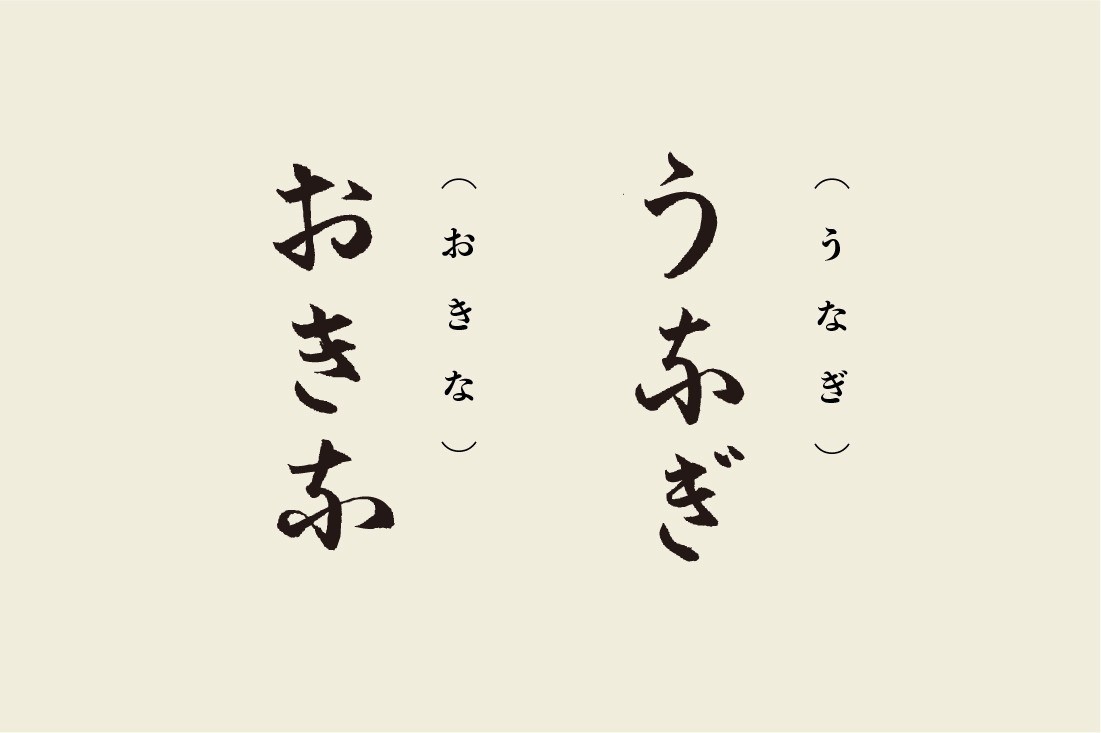 （うなぎ）
うなぎ
（おきな）
おきな